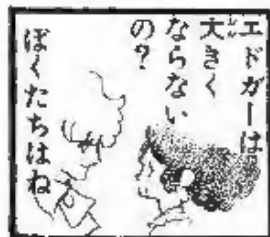 エドガーは
大きく
ならない
の？
ぼくたちはね